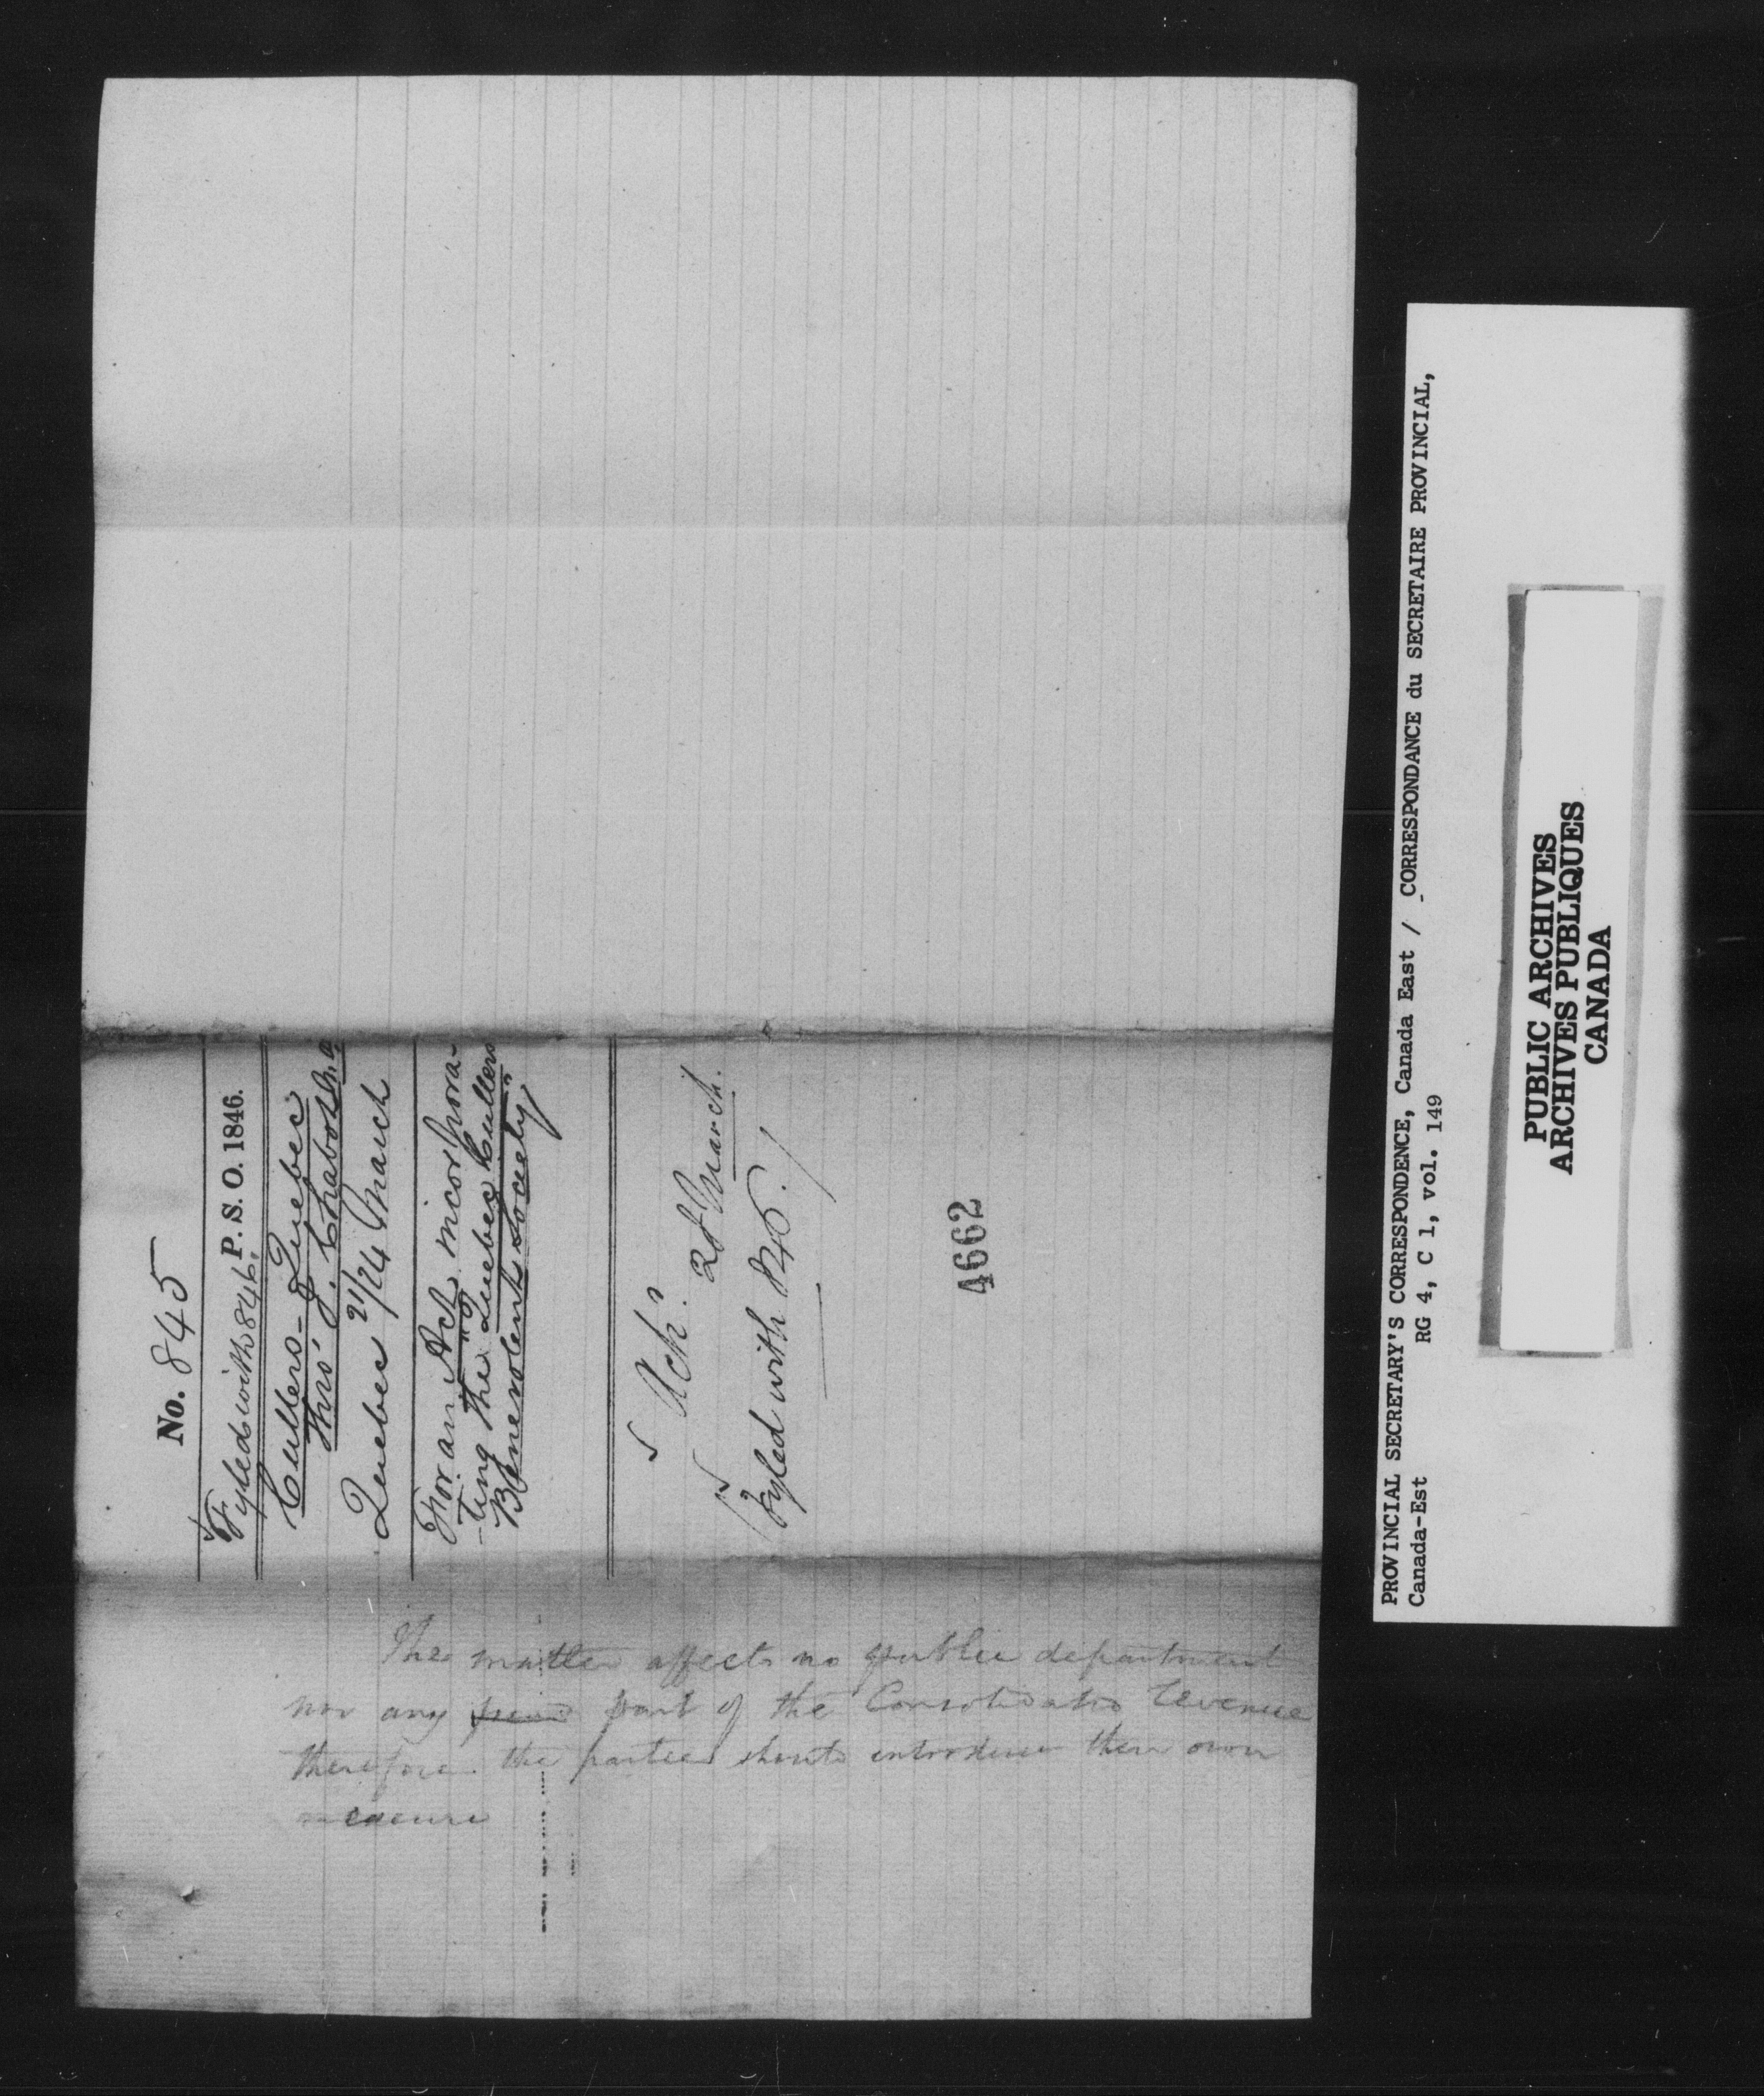 No. 845
Fyled with 846. P. S. O. 1846.
Cullers - Quebec
thro' J. Chabot
Quebec 21/24 March
For an Act incorpora-
-ting the "Quebec Cullers
Benevolent Society"
Ack?
28 March.
Fyled with 846.
4662
The matter affects no public department
nor any part of the Consolidated Revenue
therefore the parties should introduce their own
measure
PROVINCIAL SECRETARY'S CORRESPONDENCE, Canada East / CORRESPONDANCE du SECRETAIRE PROVINCIAL,
Canada-Est RG 4, C 1, vol. 149
PUBLIC ARCHIVES
ARCHIVES PUBLIQUES
CANADA